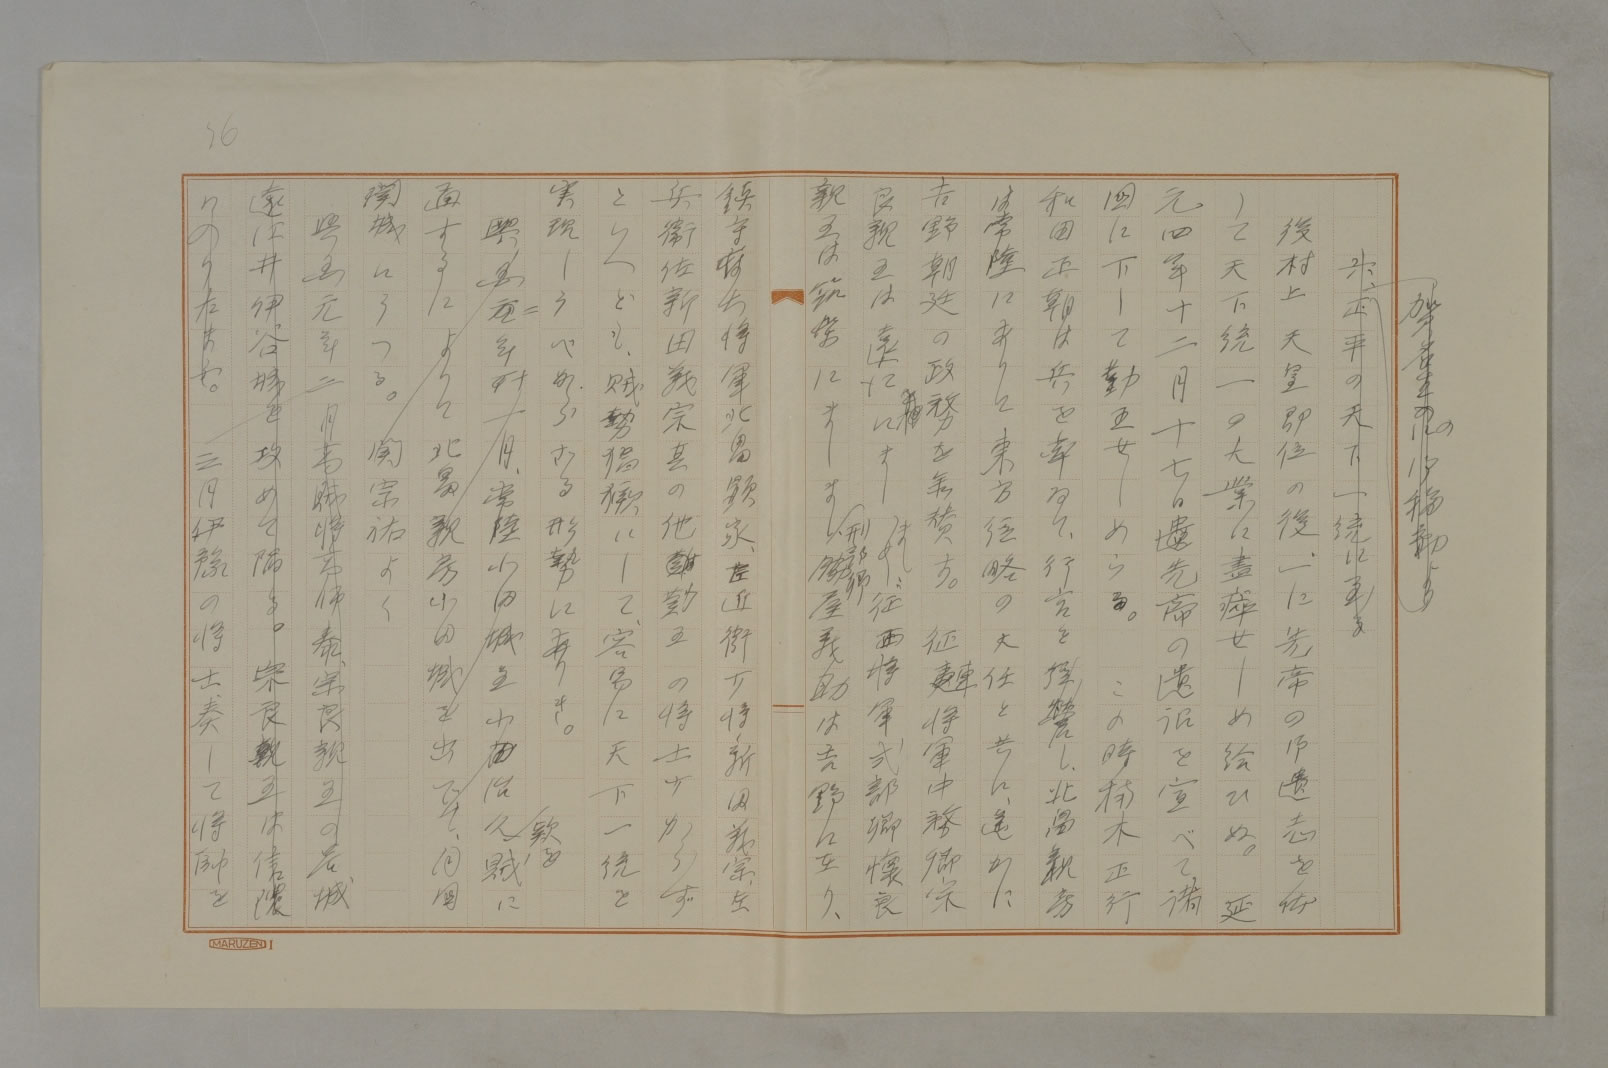 正平の天下一統に至る
後村上天皇即位の後、一に先帝の御遺志を体
して天下統一の大業に盡瘁せしめ給ひぬ。延
元四年十二月十七日遺先帝の遺詔を宣べて、諸
国に下して勤王せしめらる。この時楠木正行
和田正朝は兵を率ゐて、行宮を
は常陸にありて東方経略の大任と共に、遙かに
吉野朝廷の政務を無賛す。征夷将軍中務卿宗
良親王は遠江にまし
征西将軍式部卿懐良
親王は筑紫にましまし、
刑部卿
脇屋義助は吉野に在り、
鎮守府大将軍北畠顕家、左近衛少将新田義宗、左
兵衛佐新田義宗其の他勤王の将士少からず
といへども、賊勢猖獗にして、容易に天下一統を
実現しうべからざる形勢にありき。
興国二年十一月、常陸小田城主小田治久、賊に
款を
通ずるによりて北畠親房小田城を出で、同国
関城にうつる。関宗祐よく
興国元年二月高賊将高師泰、宗良親王の居城
遠江井伊谷城を攻めて陥る。宗良親王は信濃
にのりたまふ。三月伊豫の将士奏して将帥を
MARUZEN I